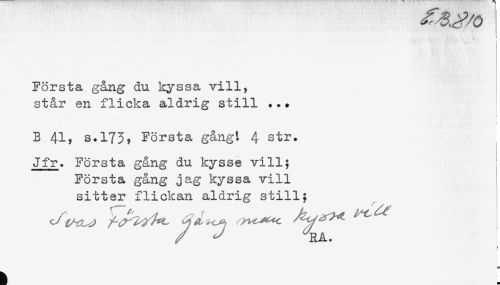 E.B.810
Första gång du kyssa vill,
står en flicka aldrig still ...
B 41, s.173, Första gång! 4 str.
Jfr. Första gång du kysse vill;
Första gång jag kyssa vill
sitter flickan aldrig still;
Svas Första gång man kyssa vill
RA.